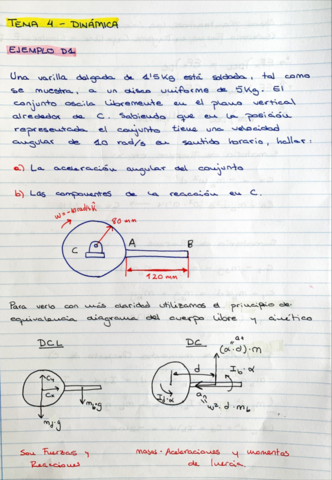 TEMA 4 - DINÁMICA
EJEMPLO D1
Una varilla delgada de 1'5 Kg está soldada, tal como
se muestra, a un disco uniforme de 5 Kg. El
conjunto oscila libremente en el plano vertical
alrededor de C. Sabiendo que en la posición
representada el conjunto tiene una velocidad
angular de 10 rad/s en sentido horario, hallar:
a) La aceleración angular del conjunto
b) Las componentes de la reacción en C.
80 mm
C
A
B
120 mm
Para verlo con más claridad utilizamos el principio de
equivalencia diagrama del cuerpo libre y cinético
DCL
DC
(α·d)·m
d
I_b·α
I_d·α
ω²·d·m_b
m_d·g
m_b·g
Son Fuerzas y
Reacciones
masas · Aceleraciones y momentos
de Inercia